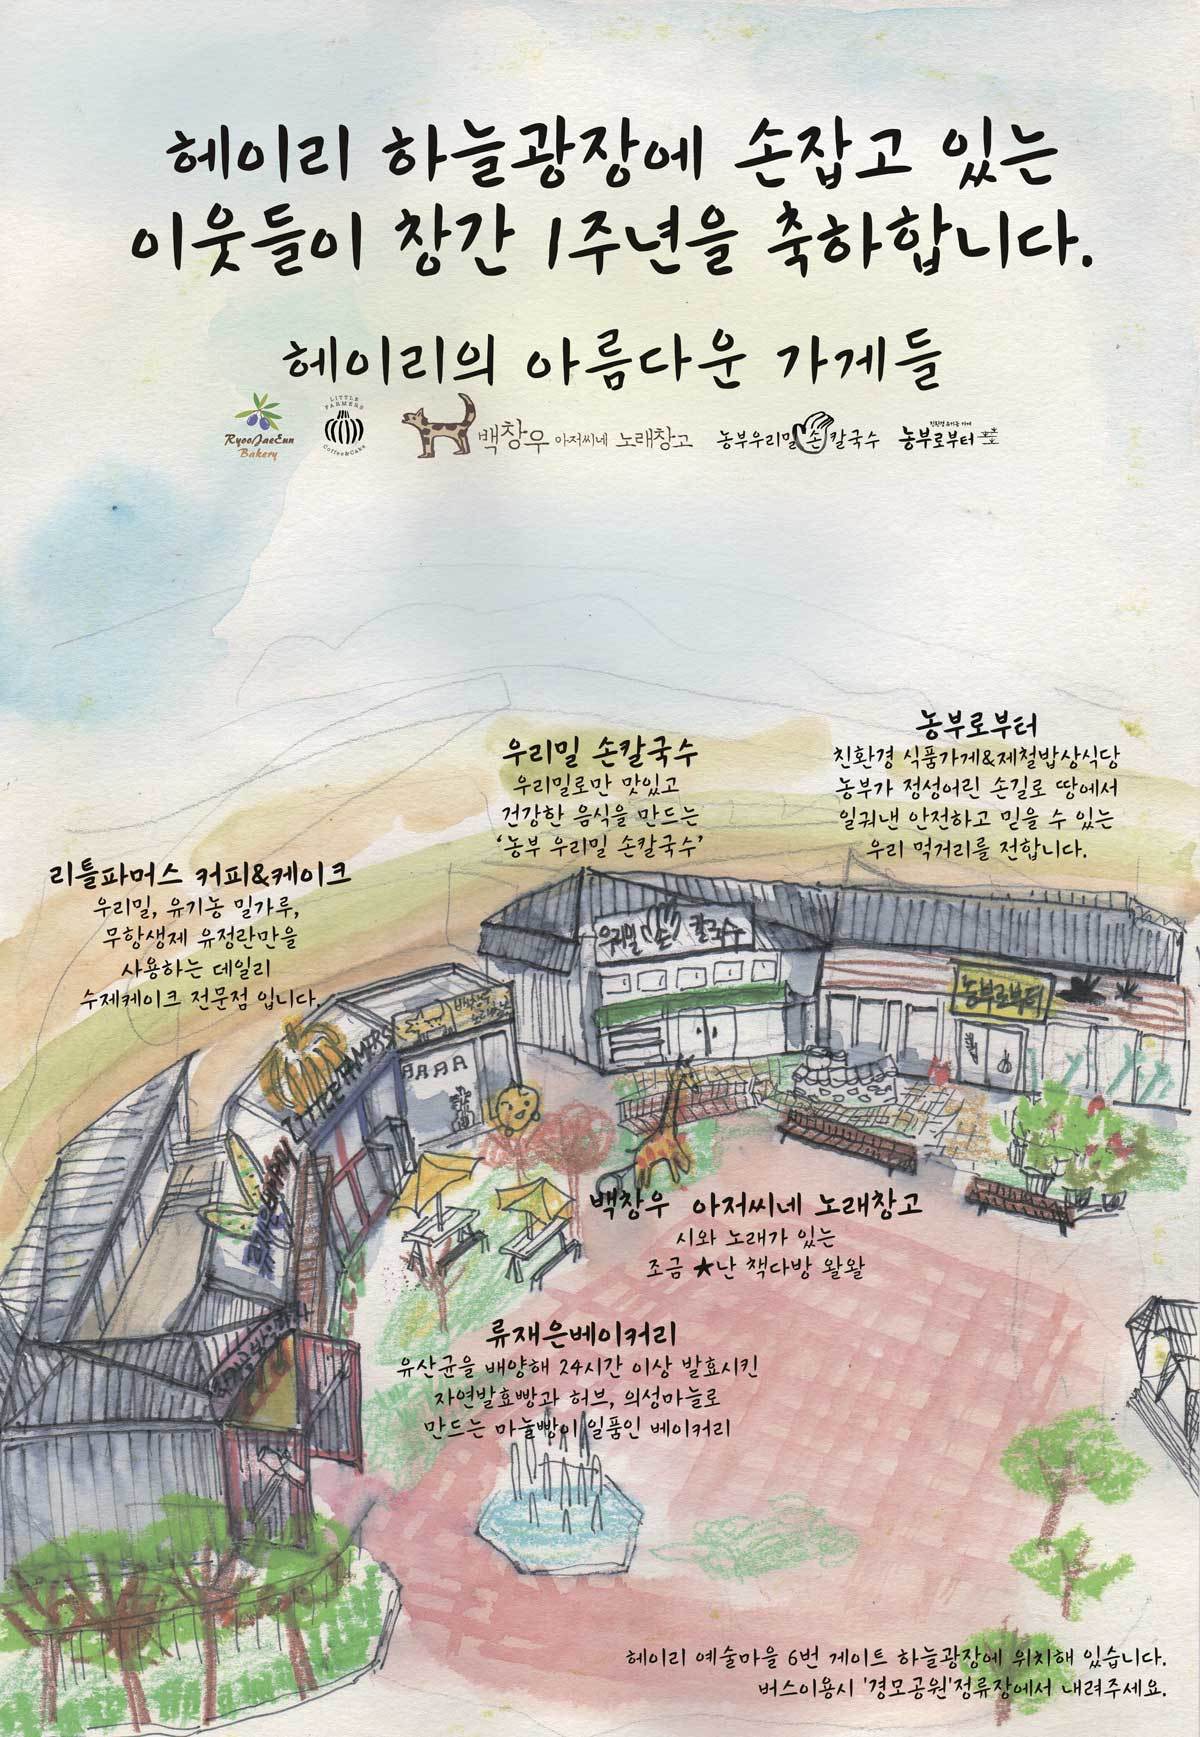 헤이리 하늘광장에 손잡고 있는
이웃들이 창간 1주년을 축하합니다.
헤이리의 아름다운 가게들
RyooJaeEun
Bakery
LITTLE
FARMERS
Coffee&Cake
백창우 아저씨네 노래창고
농부우리밀 손 칼국수
농부로부터
농부로부터
친환경 식품가게&제철밥상식당
농부가 정성어린 손길로 땅에서
일궈낸 안전하고 믿을 수 있는
우리 먹거리를 전합니다.
우리밀 손칼국수
우리밀로만 맛있고
건강한 음식을 만드는
'농부 우리밀 손칼국수'
리틀파머스 커피&케이크
우리밀, 유기농 밀가루,
무항생제 유정란만을
사용하는 데일리
수제케이크 전문점 입니다.
우리밀 손 칼국수
농부로부터
LITTLE FARMERS
백창우 아저씨네 노래창고
시와 노래가 있는
조금 ★난 책다방 왈왈
류재은베이커리
유산균을 배양해 24시간 이상 발효시킨
자연발효빵과 허브, 의성마늘로
만드는 마늘빵이 일품인 베이커리
헤이리 예술마을 6번 게이트 하늘광장에 위치해 있습니다.
버스이용시 '경모공원'정류장에서 내려주세요.